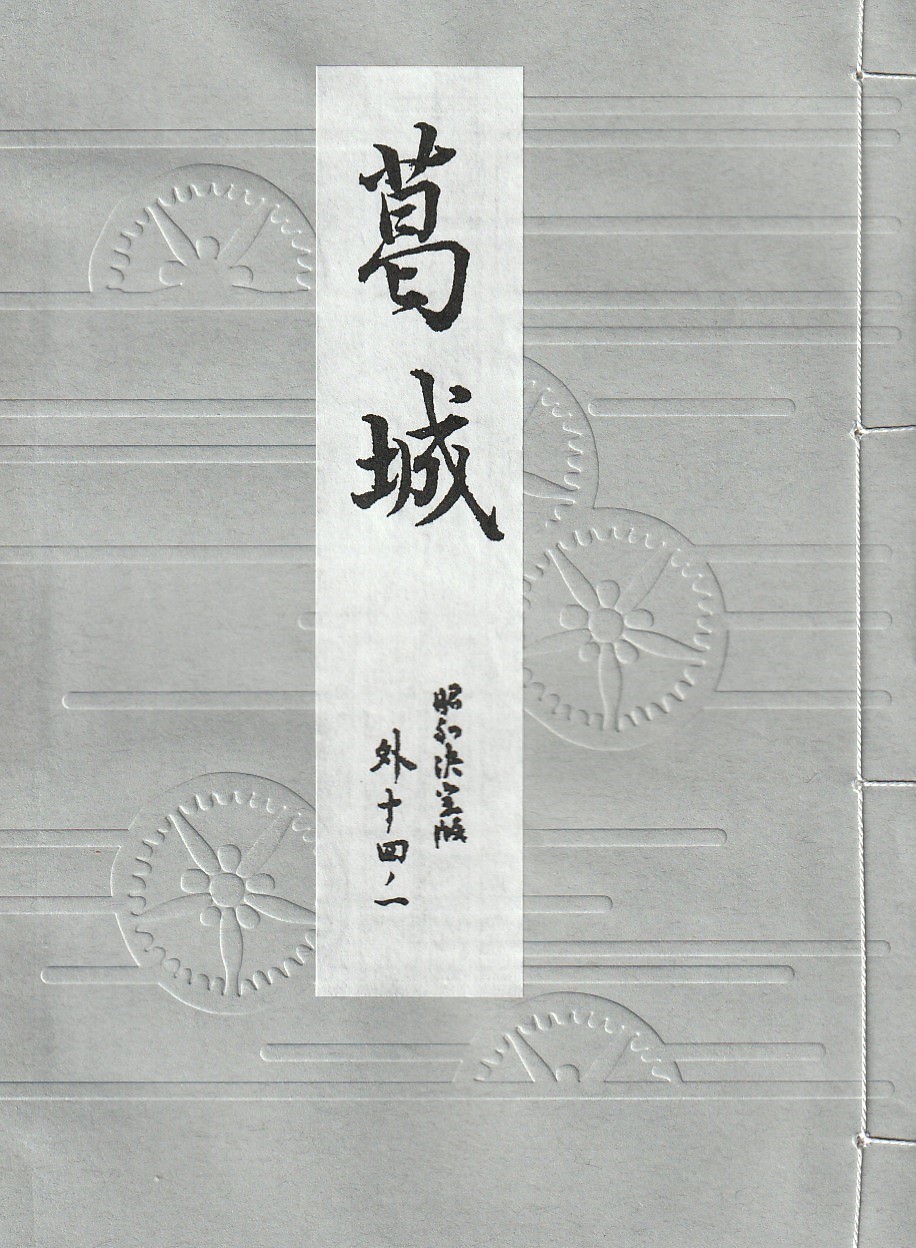 葛城
昭和決定版
外十四ノ一